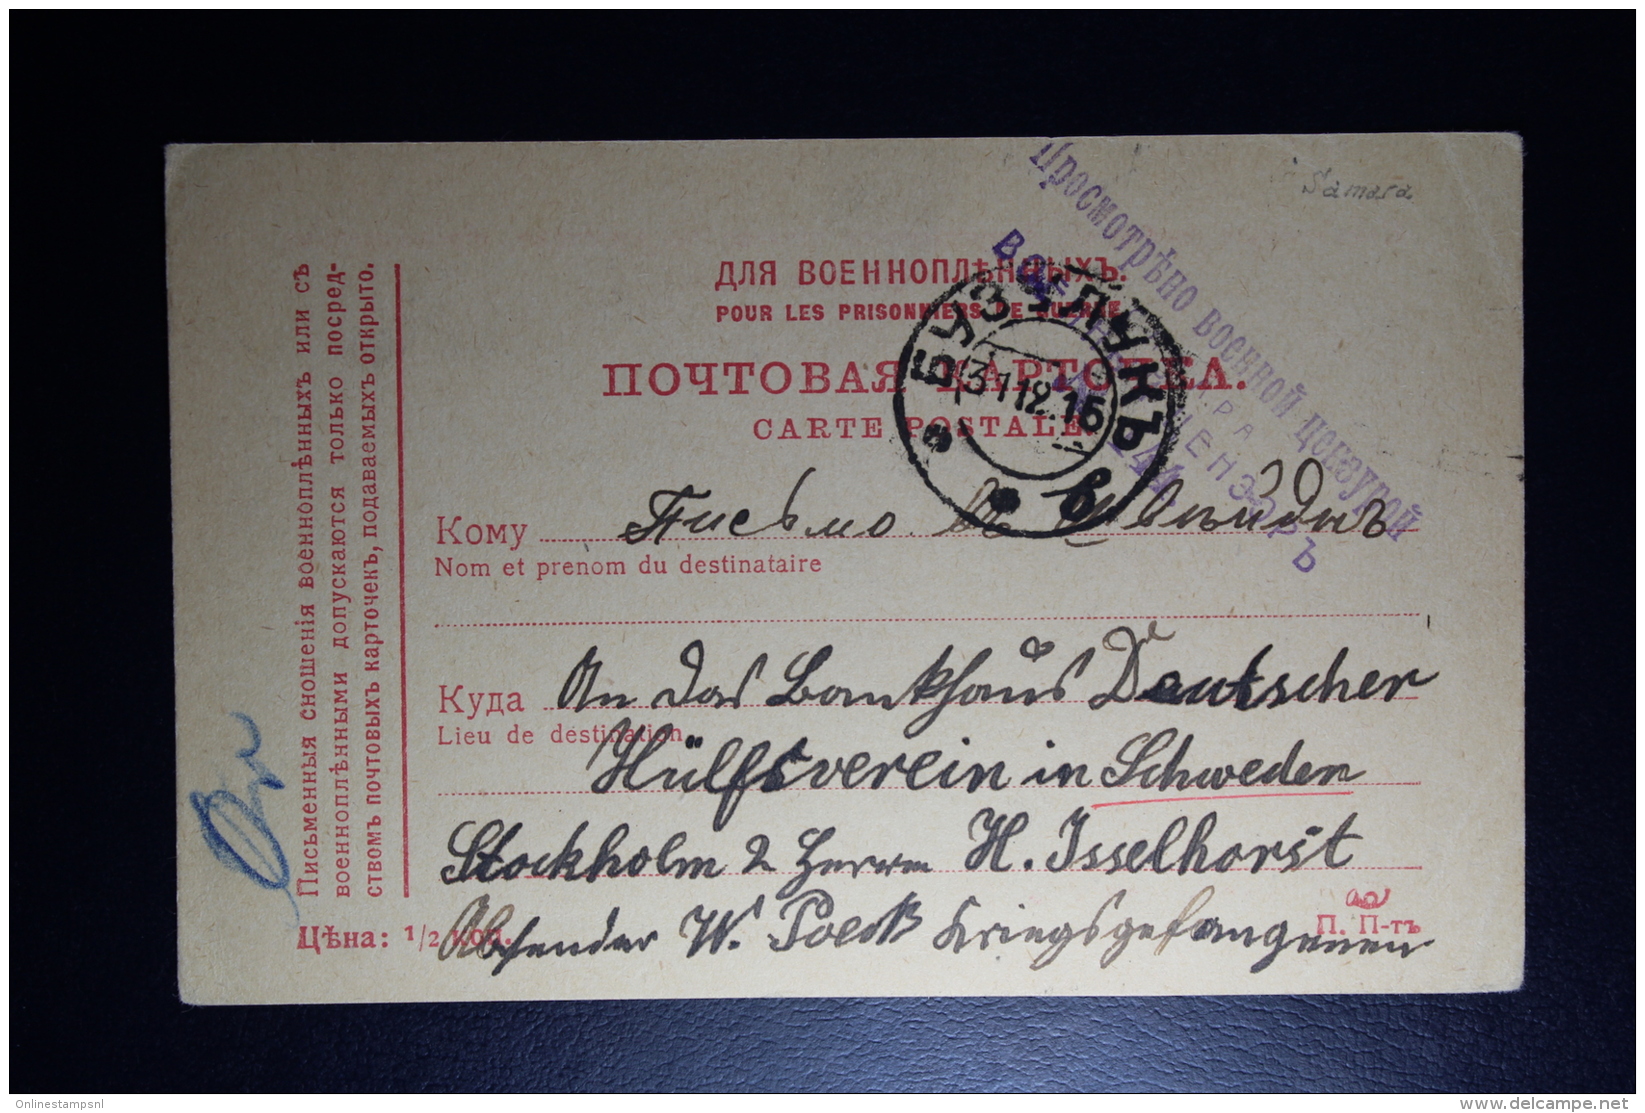 Samara
Просмотрѣно военной цензурой
ЦЕНЗОРЪ
ДЛЯ ВОЕННОПЛѢННЫХЪ.
POUR LES PRISONNIERS DE GUERRE
ПОЧТОВАЯ КАРТОЧКА.
CARTE POSTALE.
БУЗУЛУКЪ
Кому Письмо въ
Nom et prenom du destinataire
Куда An das Bankhaus Deutscher
Lieu de destination
Hülfsverein in Schweden
Stockholm 2 Herrn H. Isselhorst
Absender W. Poeck Kriegsgefangenen
Цѣна: 1/2 коп.
П. П-тъ
Письменныя сношенія военноплѣнныхъ или съ
военноплѣнными допускаются только посред-
ствомъ почтовыхъ карточекъ, подаваемыхъ открыто.
Onlinestampsnl
http://www.delcampe.net